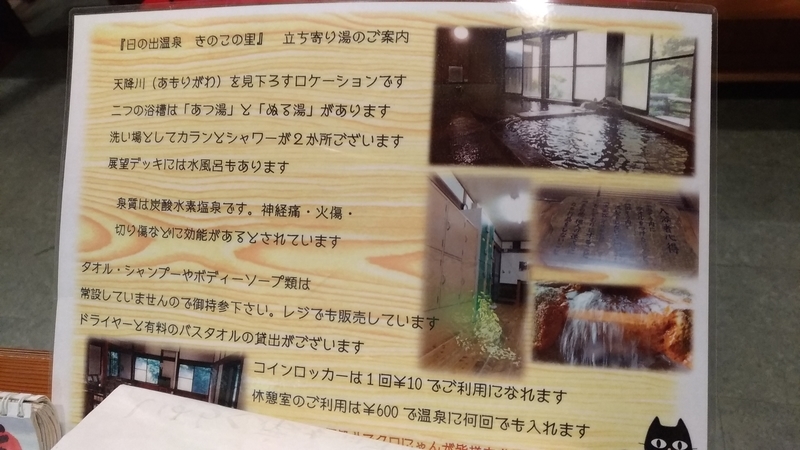 『日の出温泉 きのこの里』 立ち寄り湯のご案内
天降川（あもりがわ）を見下ろすロケーションです
二つの浴槽は「あつ湯」と「ぬる湯」があります
洗い場としてカランとシャワーが２か所ございます
展望デッキには水風呂もあります
泉質は炭酸水素塩泉です。神経痛・火傷・
切り傷などに効能があるとされています
タオル・シャンプーやボディーソープ類は
常設していませんので御持参下さい。レジでも販売しています
ドライヤーと有料のバスタオルの貸出がございます
コインロッカーは１回¥10 でご利用になれます
休憩室のご利用は¥600 で温泉に何回でも入れます